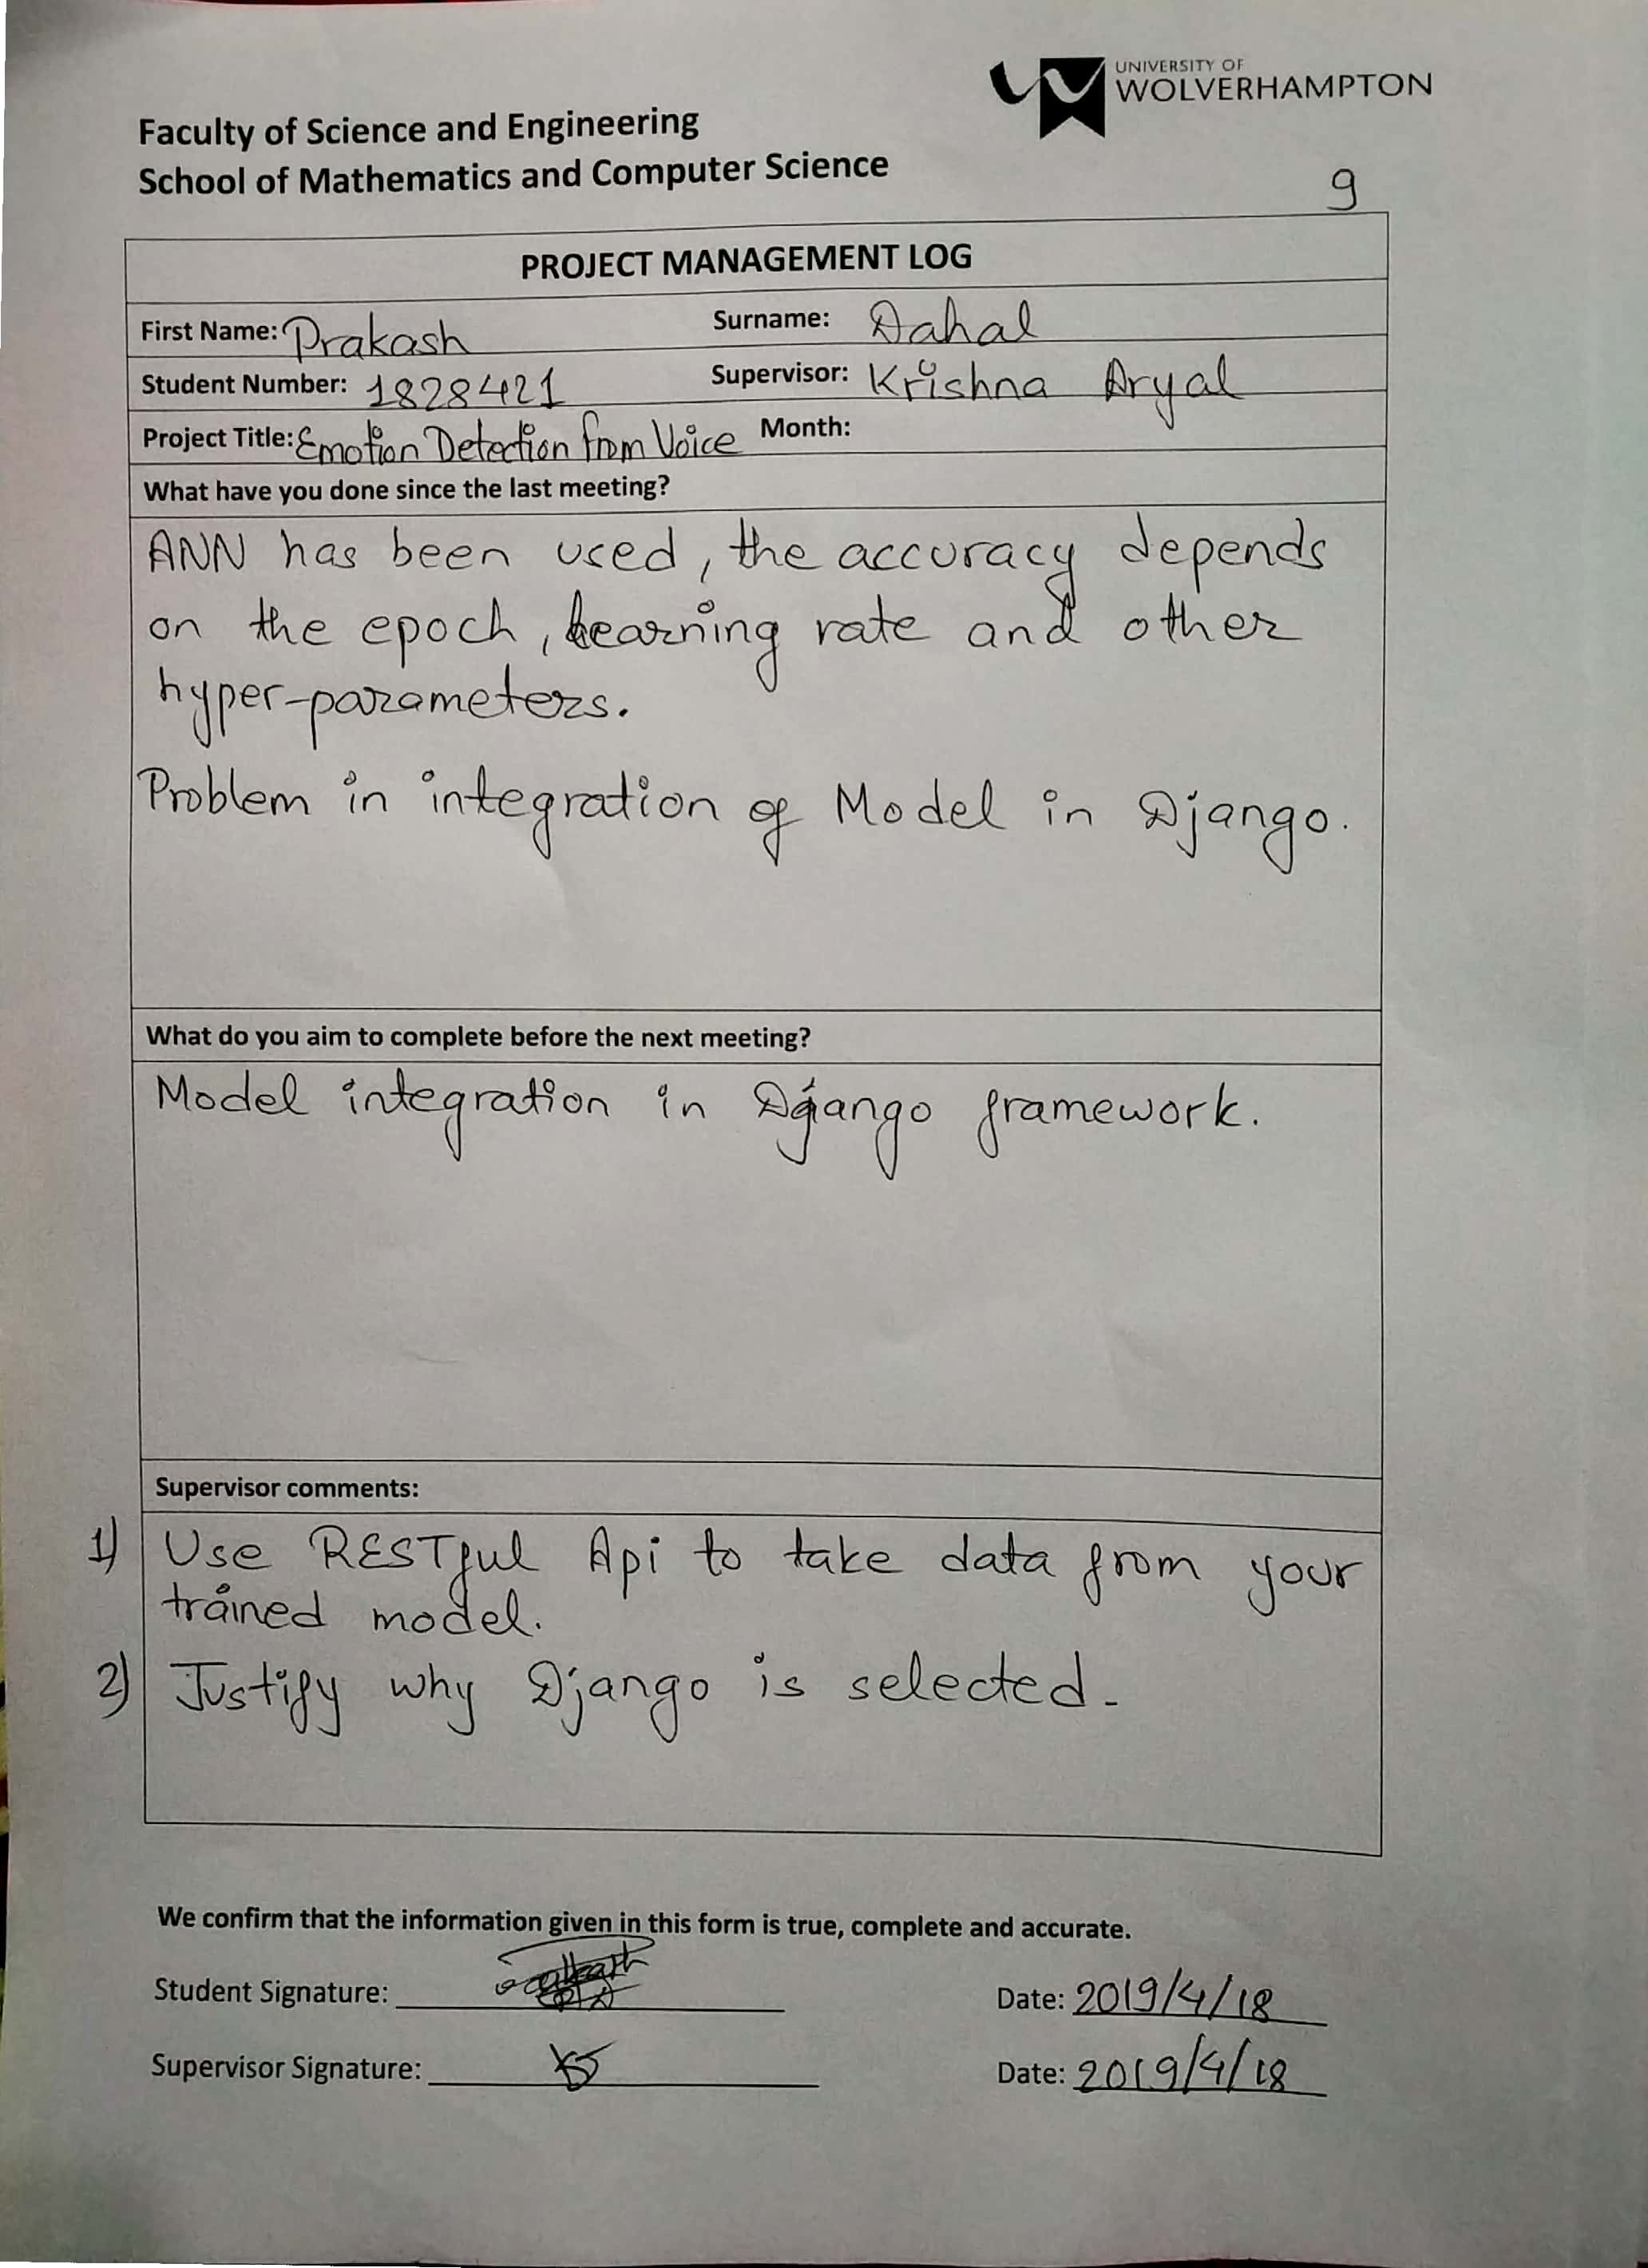 UNIVERSITY OF
WOLVERHAMPTON
Faculty of Science and Engineering
School of Mathematics and Computer Science
9
PROJECT MANAGEMENT LOG
First Name: Prakash Surname: Dahal
Student Number: 1828421 Supervisor: Krishna Aryal
Project Title: Emotion Detection from Voice Month:
What have you done since the last meeting?
ANN has been used, the accuracy depends
on the epoch, learning rate and other
hyper-parameters.
Problem in integration of Model in Django.
What do you aim to complete before the next meeting?
Model integration in Django framework.
Supervisor comments:
1) Use RESTful Api to take data from your
trained model.
2) Justify why Django is selected.
We confirm that the information given in this form is true, complete and accurate.
Student Signature: Date: 2019/4/18
Supervisor Signature: Date: 2019/4/18